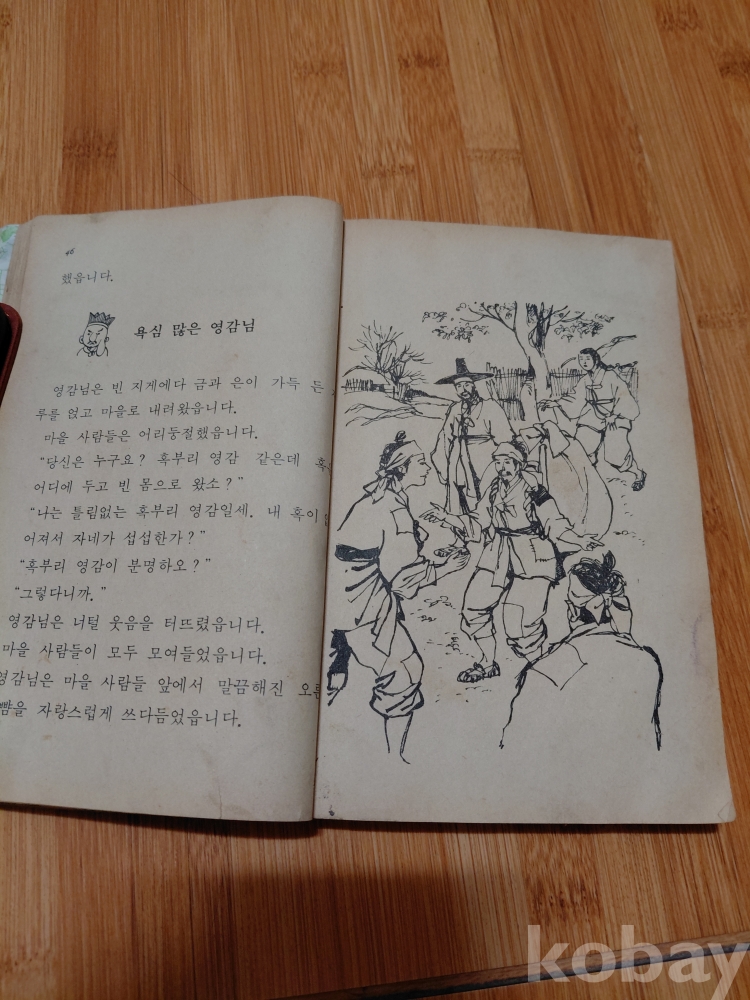 46
했읍니다.
욕심 많은 영감님
영감님은 빈 지게에다 금과 은이 가득 든
루를 얹고 마을로 내려왔읍니다.
마을 사람들은 어리둥절했읍니다.
“당신은 누구요? 혹부리 영감 같은데 혹
어디에 두고 빈 몸으로 왔소?”
“나는 틀림없는 혹부리 영감일세. 내 혹이
어져서 자네가 섭섭한가?”
“혹부리 영감이 분명하오?”
“그렇다니까.”
영감님은 너털 웃음을 터뜨렸읍니다.
마을 사람들이 모두 모여들었읍니다.
영감님은 마을 사람들 앞에서 말끔해진 오른
뺨을 자랑스럽게 쓰다듬었읍니다.
kobay